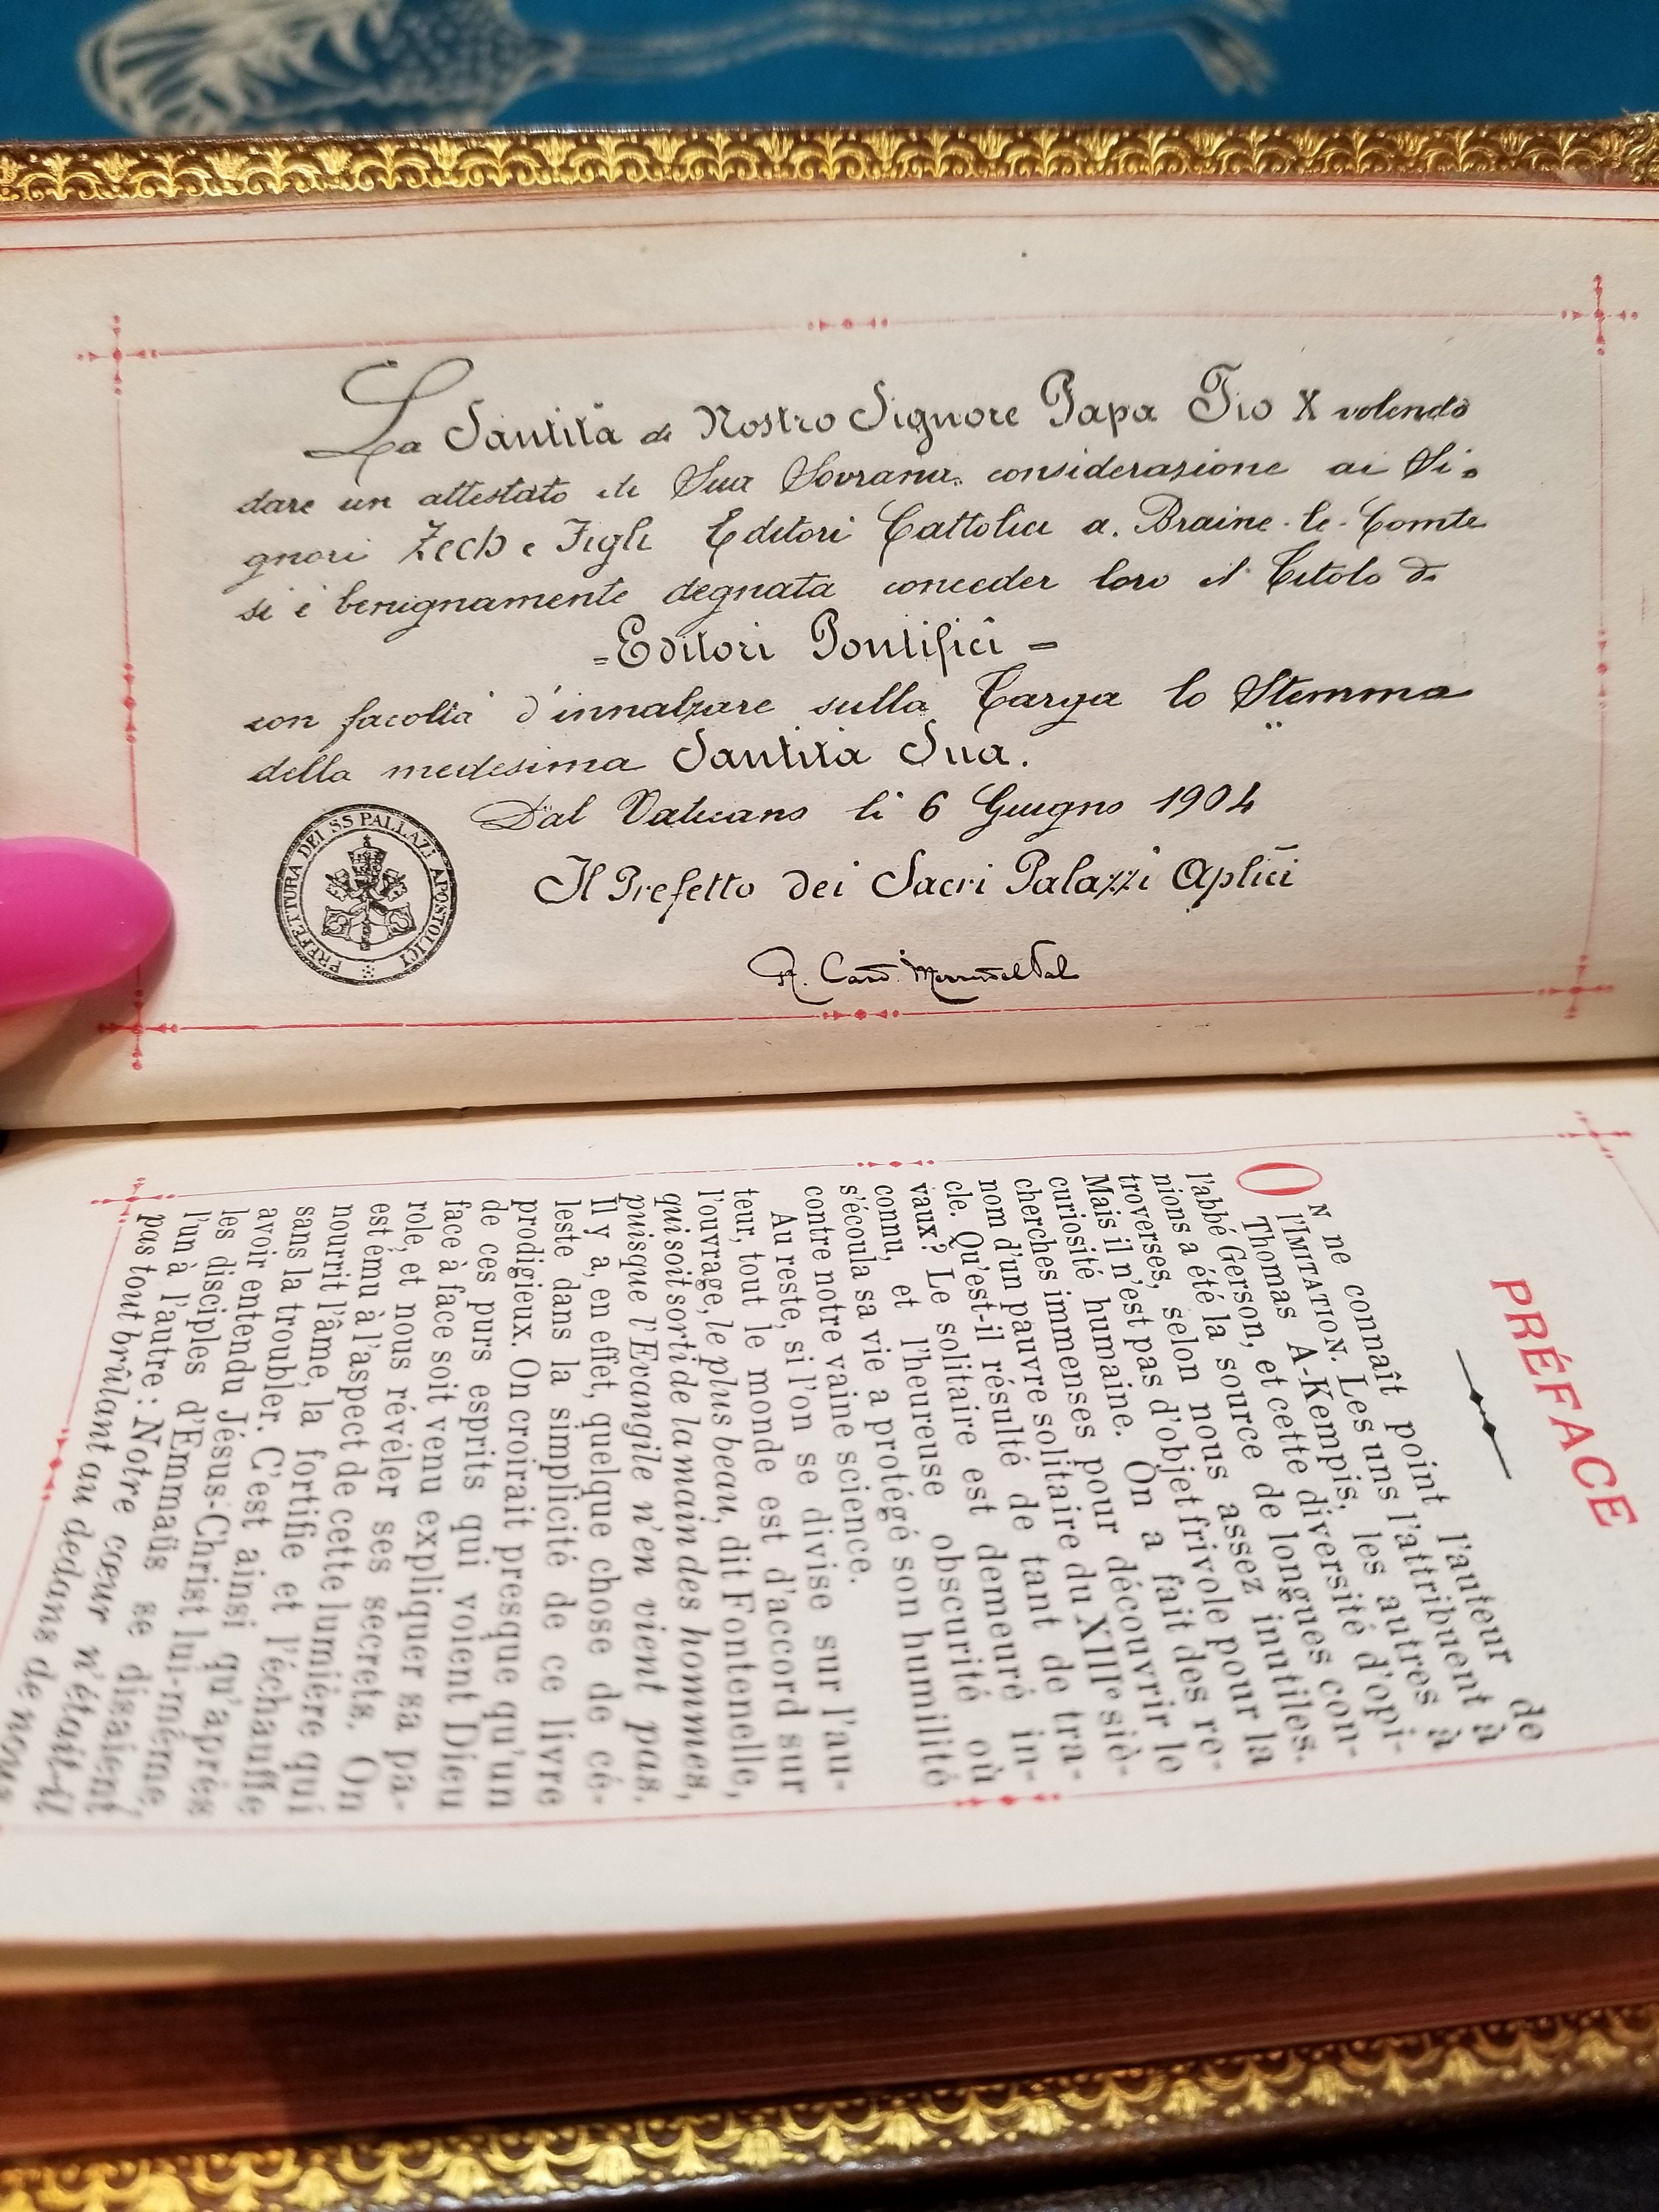 La Santità di Nostro Signore Papa Pio X volendo
dare un attestato di Sua Sovrana considerazione ai Si-
gnori Zech e Figli Editori Cattolici a Braine-le-Comte
si è benignamente degnata conceder loro il Titolo di
=Editori Pontifici=
con facoltà d'innalzare sulla Targa lo Stemma
della medesima Santità Sua.
Dal Vaticano li 6 Giugno 1904
Il Prefetto dei Sacri Palazzi Aplici
R. Card Merry del Val
PREFETTURA DEI SS PALLAZI APOSTOLICI
PRÉFACE
ON ne connaît point l'auteur de
l'IMITATION. Les uns l'attribuent à
Thomas A-Kempis, les autres à
l'abbé Gerson, et cette diversité d'opi-
nions a été la source de longues con-
troverses, selon nous assez inutiles.
Mais il n'est pas d'objet frivole pour la
curiosité humaine. On a fait des re-
cherches immenses pour découvrir le
nom d'un pauvre solitaire du XIIIe siè-
cle. Qu'est-il résulté de tant de tra-
vaux? Le solitaire est demeuré in-
connu, et l'heureuse obscurité où
s'écoula sa vie a protégé son humilité
contre notre vaine science.
Au reste, si l'on se divise sur l'au-
teur, tout le monde est d'accord sur
l'ouvrage, le plus beau, dit Fontenelle,
qui soit sorti de la main des hommes,
puisque l'Evangile n'en vient pas.
Il y a, en effet, quelque chose de cé-
leste dans la simplicité de ce livre
prodigieux. On croirait presque qu'un
de ces purs esprits qui voient Dieu
face à face soit venu expliquer sa pa-
role, et nous révéler ses secrets. On
est ému à l'aspect de cette lumière qui
nourrit l'âme, la fortifie et l'échauffe
sans la troubler. C'est ainsi qu'après
avoir entendu Jésus-Christ lui-même,
les disciples d'Emmaüs se disaient
l'un à l'autre : Notre cœur n'était-il
pas tout brûlant au dedans de nous